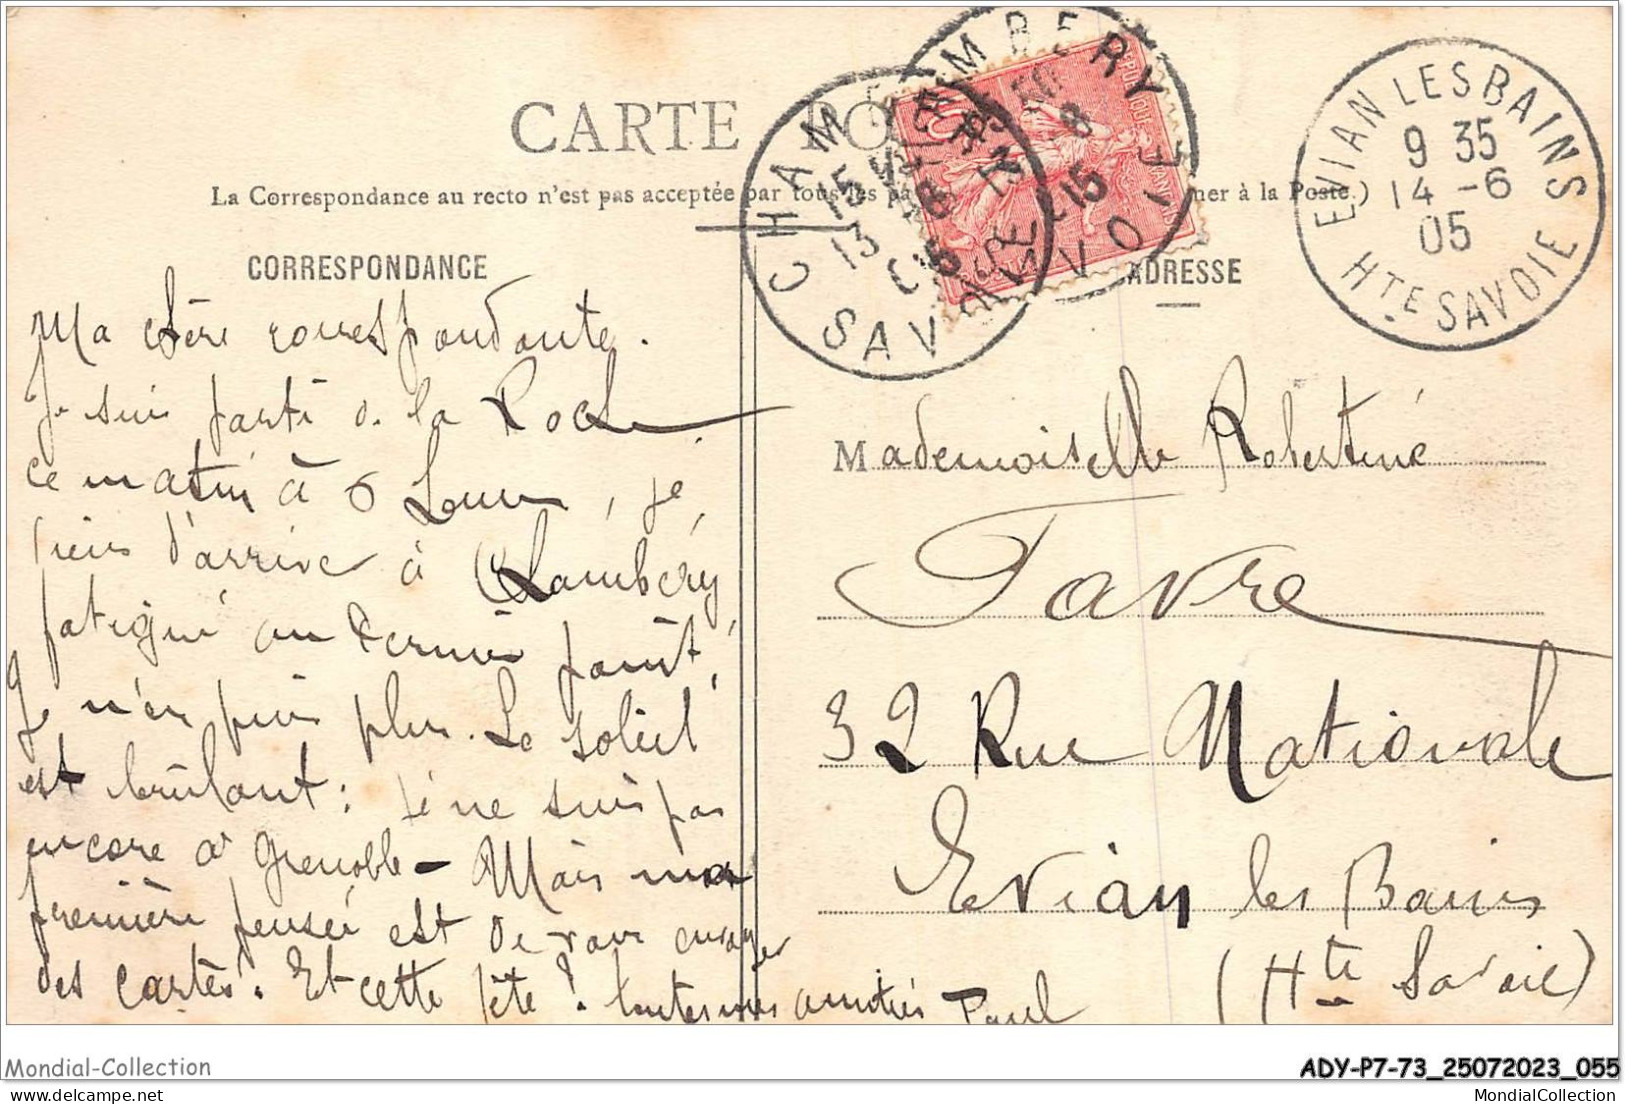 CARTE PO
La Correspondance au recto n'est pas acceptée par tous les pa
ner à la Poste.)
CORRESPONDANCE
ADRESSE
CHAMBERY
SAVOIE
15
13
05
CHAMBERY
SAVOIE
EVIAN LES BAINS
9 35
14 -6
05
Hte SAVOIE
Ma chère correspondante.
Je suis parti de la Roche
ce matin à 6 heures, je
viens d'arriver à Chambéry
fatigué au dernier point,
Je n'en puis plus. Le soleil
est brûlant : je ne suis pas
encore à Grenoble - Mais ma
première pensée est de vous envoyer
des cartes. Et cette fête ? toutes mes amitiés Paul
Mademoiselle Robertine
Favre
32 Rue Nationale
Evian les Bains
(Hte Savoie)
Mondial-Collection
ADY-P7-73_25072023_055
delcampe.net
MondialCollection